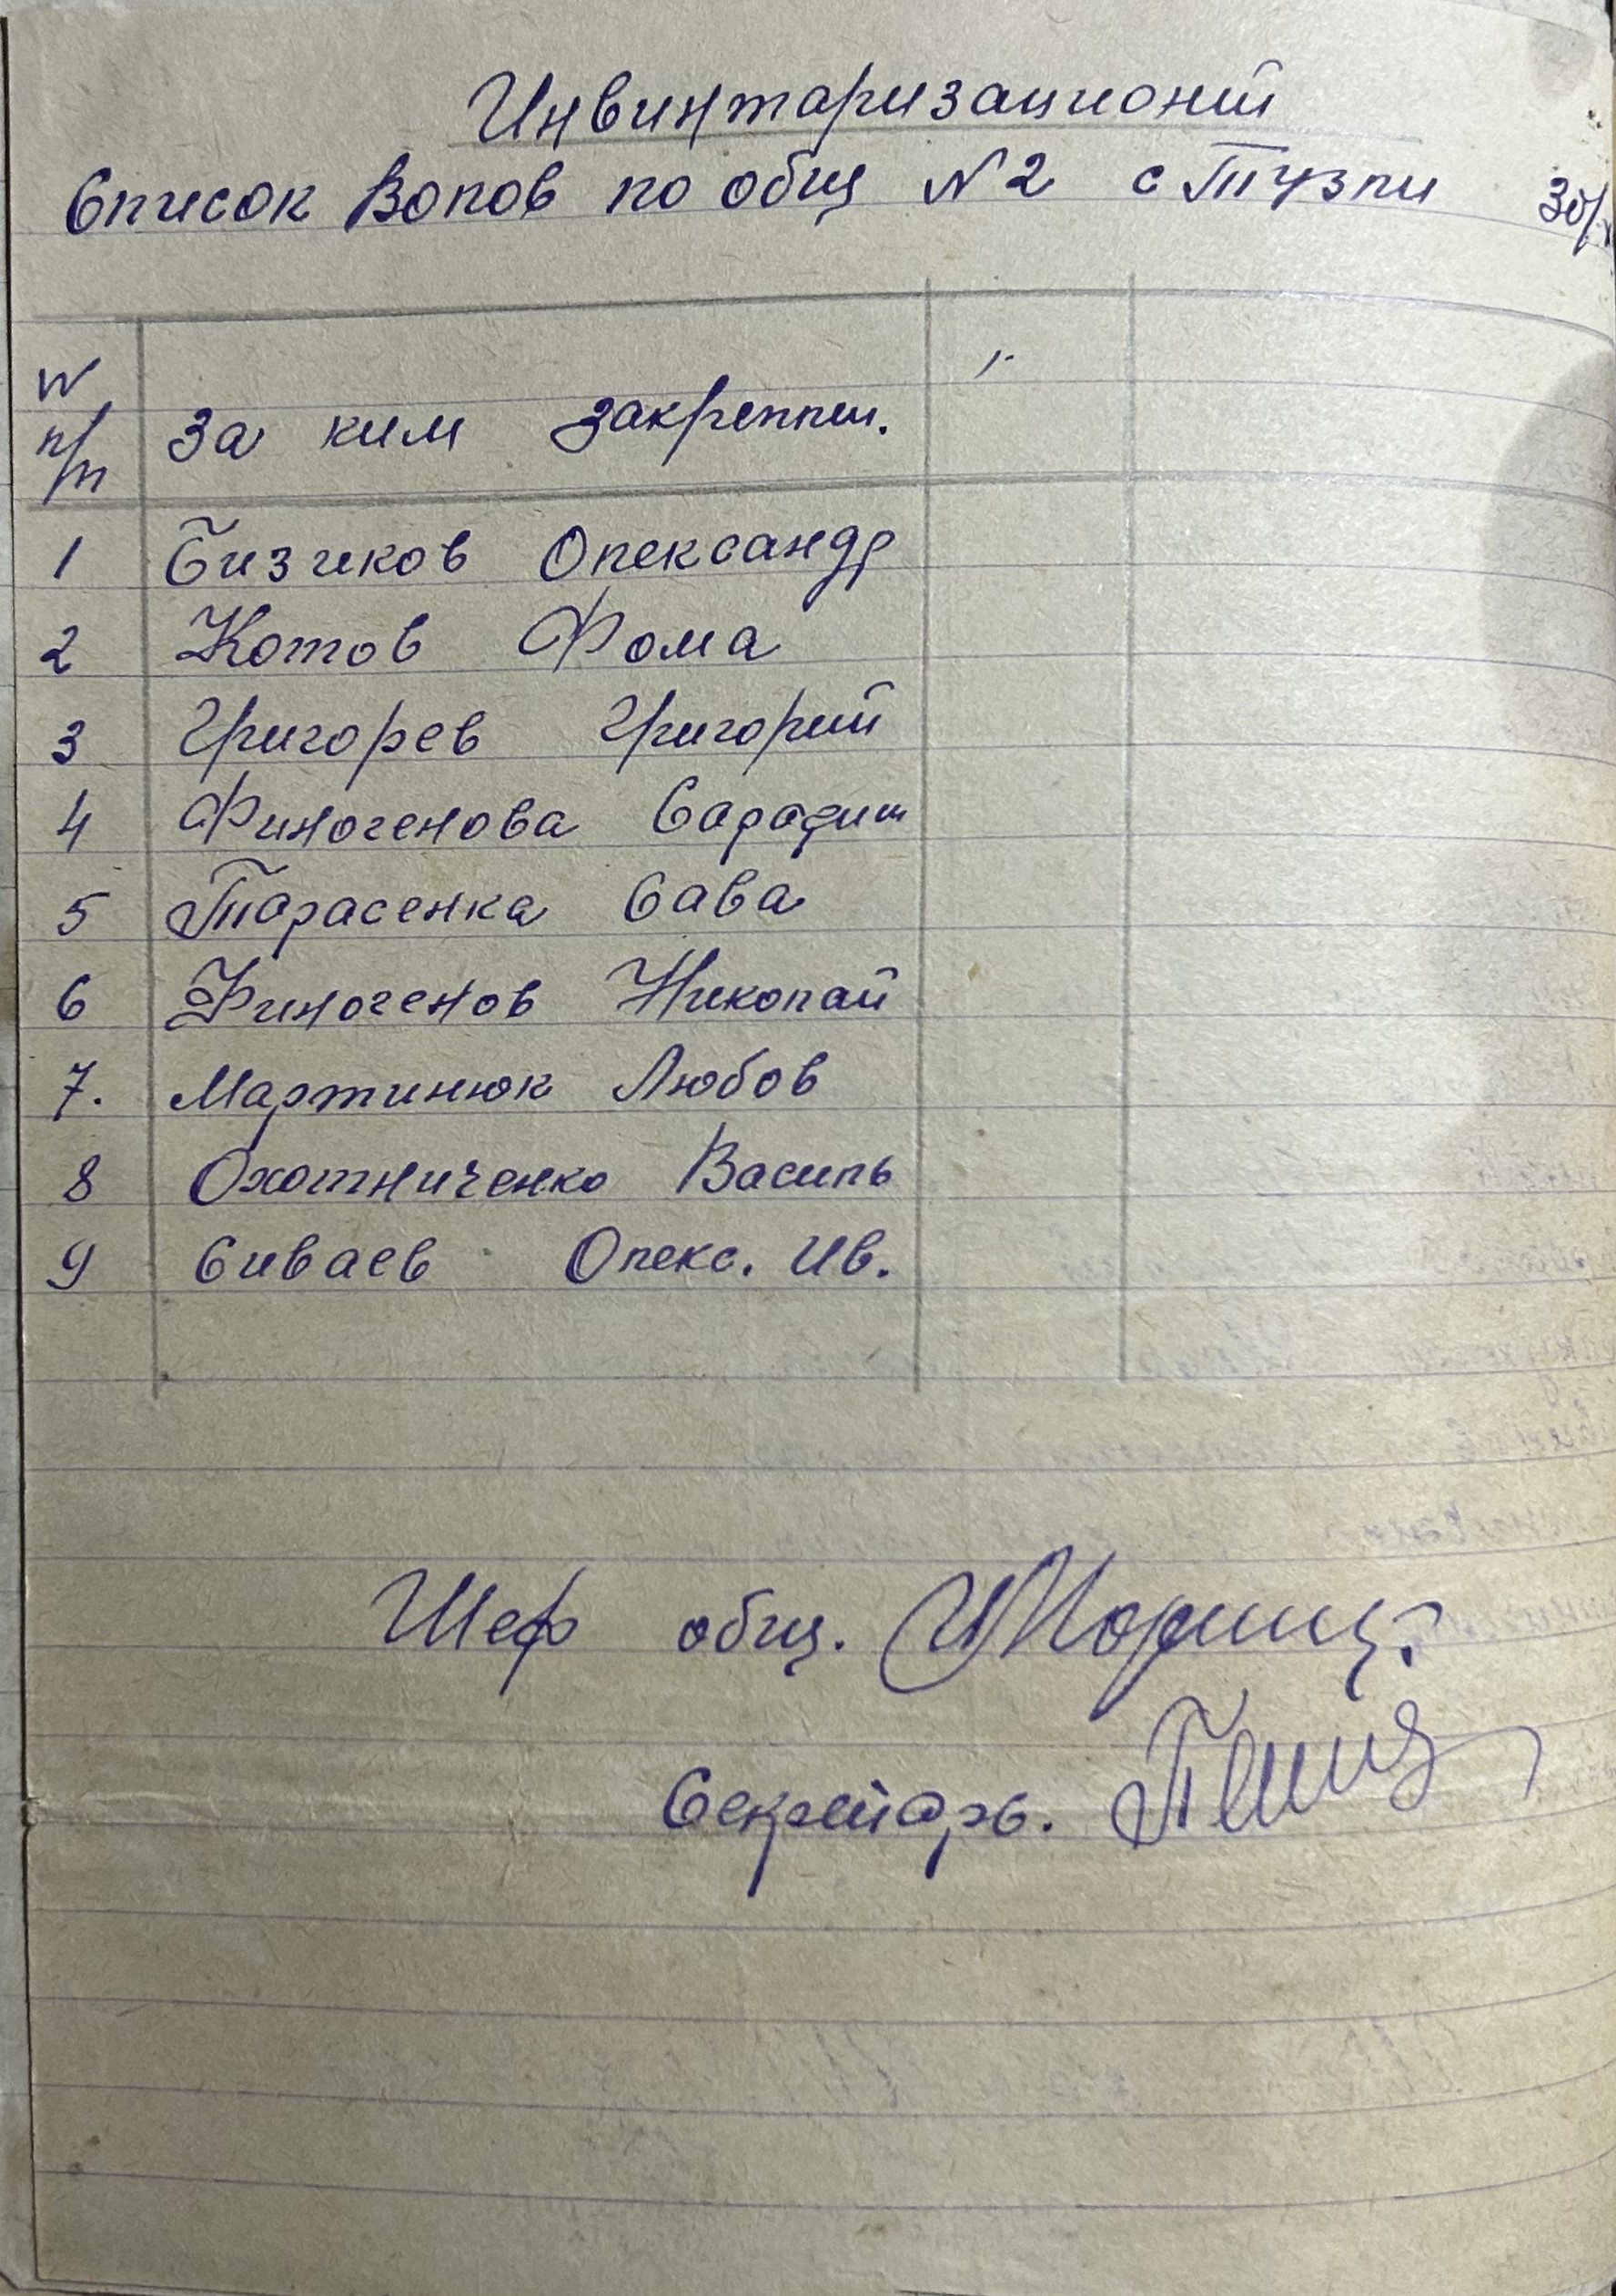 Инвинтаризационий
Список Волов по общ N2 с Тузли 30/
N
п/п За ким закреплен.
1 Бизиков Олександр
2 Котов Фома
3 Григорев Григорий
4 Финогенова
5 Тарасенка Сава
6 Финогенов Николай
7. Мартинюк Любов
8 Охотниченко Василь
9 Сиваев Олекс. Ив.
Шеф общ.
Секретарь.